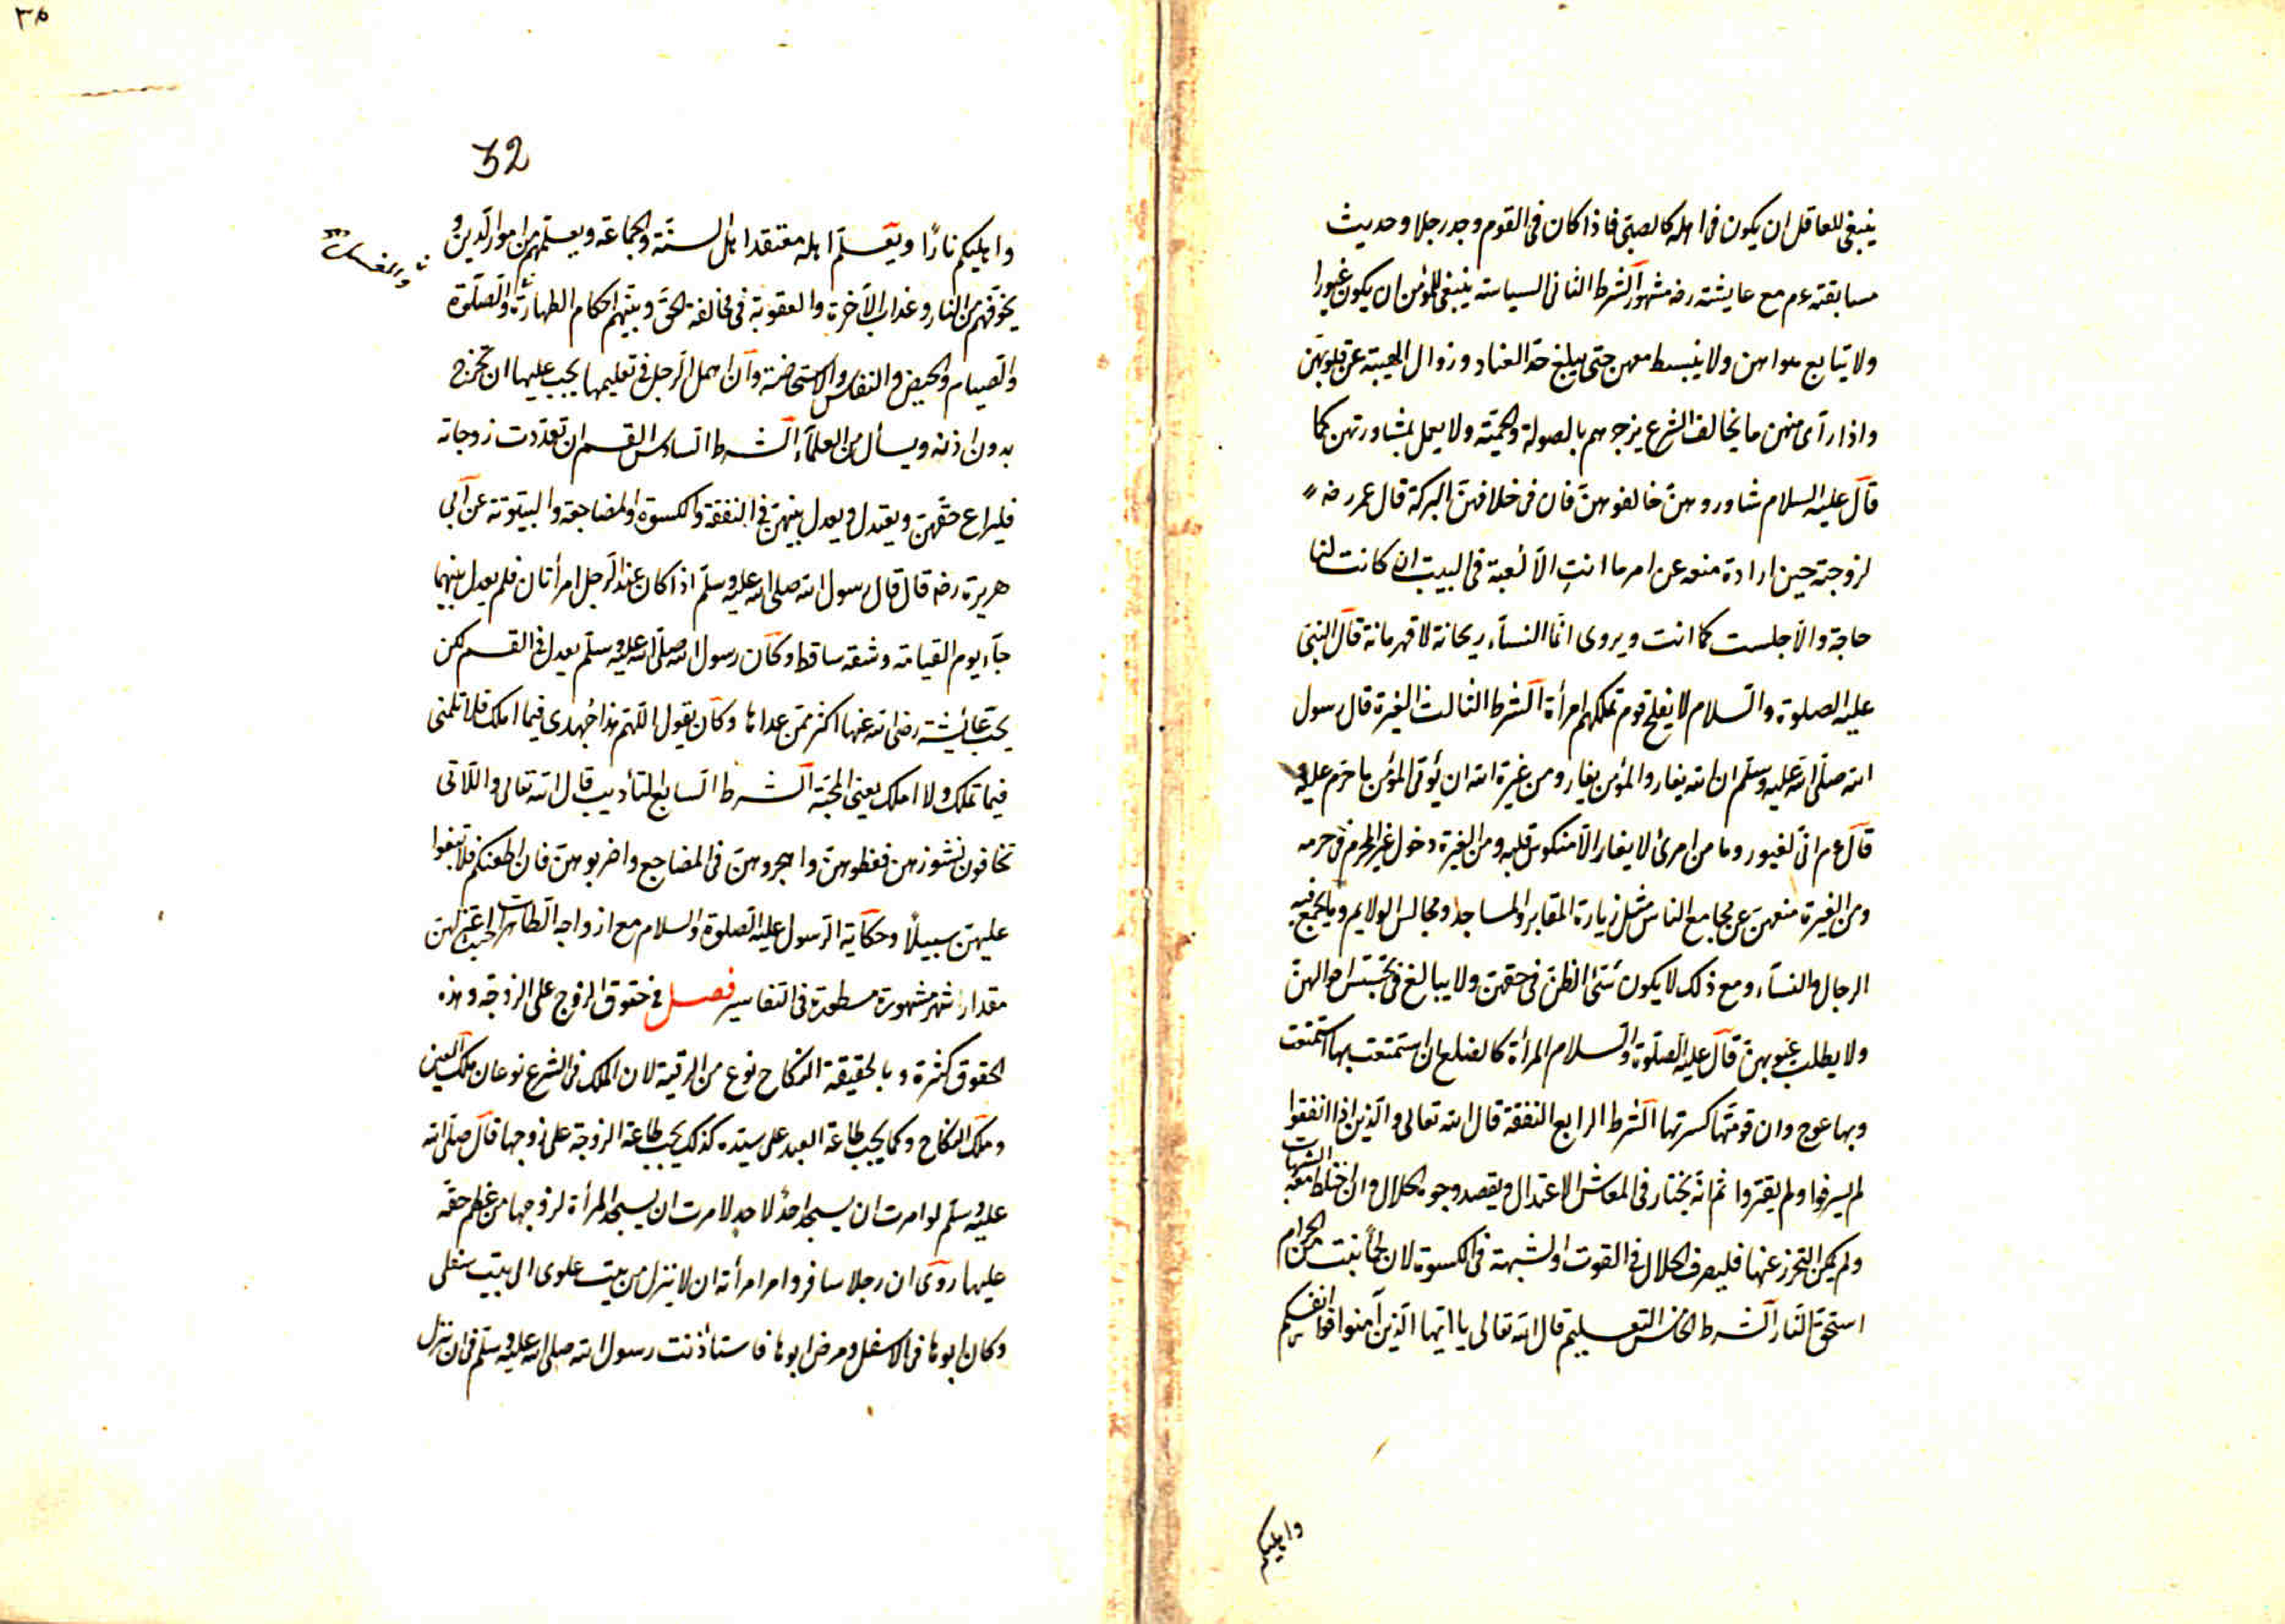 ينبغى للعاقل ان يكون فى اهله كالصبى فاذا كان فى القوم وجد رجلا وحديث
مسابقته ءم مع عايشته رضه مشهور الشرط الثانى السياسته ينبغى للمؤمن ان يكون غيورا
ولا يتابع هواهن ولا ينبسط معهن حتى يبلغ حد العناد وزوال الهيبته عن قلوبهن
واذا رآى منهن ما يخالف الشرع يزجرهم بالصولة والحميته ولا يعمل بمشاورتهن كما
قال عليه السلام شاوروهن خالفوهن فان فى خلافهن البركة قال عمر رضه
لزوجته حين ارادة منعه عن امر ما انتِ الا لُعبة فى البيت ان كانت لنا
حاجة والا جلست كما انت ويروى انما النسآء ريحانة لا قهرمانة قال النبى
عليه الصلوة والسلام لا يفلح قوم تملكهم امرأة الشرط الثالث الغيرة قال رسول
الله صلى الله عليه وسلم ان الله يغار والمؤمن يغار ومن غيرة الله ان يؤتى المؤمن ما حرم عليه
قال ءم انى لغيور وما من امرئ لا يغار الا منكوس قلبه ومن الغيرة دخول غير المحرم فى حرمه
ومن الغيرة منعهن عن مجامع الناس مثل زيارة المقابر والمساجد ومجالس الولايم وما يجمع فيه
الرجال والنسآء ومع ذلك لا يكون سئ الظن فى حقهن ولا يبالغ فى تجسس احوالهن
ولا يطلب عيوبهن قال عليه الصلوة والسلام المرأة كالضلع ان استمتعت بها استمتعت
وبها عوج وان قومتها كسرتها الشرط الرابع النفقة قال الله تعالى والذين اذا انفقوا
لم يسرفوا ولم يقتروا ثم انه يختار فى المعاش الاعتدال ويقصد وجوه الحلال وان اختلط معه الشبهات
ولم يمكن التحرز عنها فليصرف الحلال فى القوت والشبهة فى الكسوة لان لحما ينبت من الحرام
استحق النار الشرط الخامس التعليم قال الله تعالى يا ايها الذين آمنوا قوا انفسكم
واهليكم
32
واهليكم نارًا ويعلم اهله معتقد اهل السنة والجماعة ويعلمهم من امور الدين و
يخوفهم من النار وعذاب الآخرة والعقوبة فى مخالفة الحق ويبينهم احكام الطهارة والصلوة
والصيام والحيض والنفاس والاستحاضة وان اهمل الرجل فى تعليمها يجب عليها ان تخرج
بدون اذنه ويسأل من العلمآء الشرط السادس القسم ان تعددت زوجاته
فليراع حقهن ويعتدل ويعدل بينهن فى النفقة والكسوة والمضاجعة والبيتوتة عن ابى
هريرة رضه قال قال رسول الله صلى الله عليه وسلم اذا كان عند الرجل امرأتان فلم يعدل بينهما
جآء يوم القيامة وشقه ساقط وكان رسول الله صلى الله عليه وسلم يعدل فى القسم لكن
يحب عائيشة رضى الله عنها اكثر ممن عداها وكان يقول اللهم هذا جُهدى فيما املك فلا تلمنى
فيما تملك ولا املك يعنى المحبة الشرط السابع التأديب قال الله تعالى واللاتى
تخافون نشوزهن فعظوهن واهجروهن فى المضاجع واضربوهن فان اطعنكم فلا تبغوا
عليهن سبيلًا وحكاية الرسول عليه الصلوة والسلام مع ازواجه الطاهرات اعتزلهن
مقدار شهر مشهورة مسطورة فى التفاسير فصل فى حقوق الزوج على الزوجة وهذه
الحقوق كثيرة وبالحقيقة النكاح نوع من الرقية لان الملك فى الشرع نوعان ملك اليمين
وملك النكاح وكما يجب طاعة العبد على سيده كذلك يجب طاعة الزوجة على زوجها قال صلى الله
عليه وسلم لو امرت ان يسجد احدٌ لاحدٍ لامرت ان يسجد المرأة لزوجها من عظم حقه
عليها روى ان رجلا سافر وامر امرأته ان لا ينزل من بيت علوى الى بيت سفلى
وكان ابوها فى الاسفل ومرض ابوها فاستأذنت رسول الله صلى الله عليه وسلم فى ان تنزل